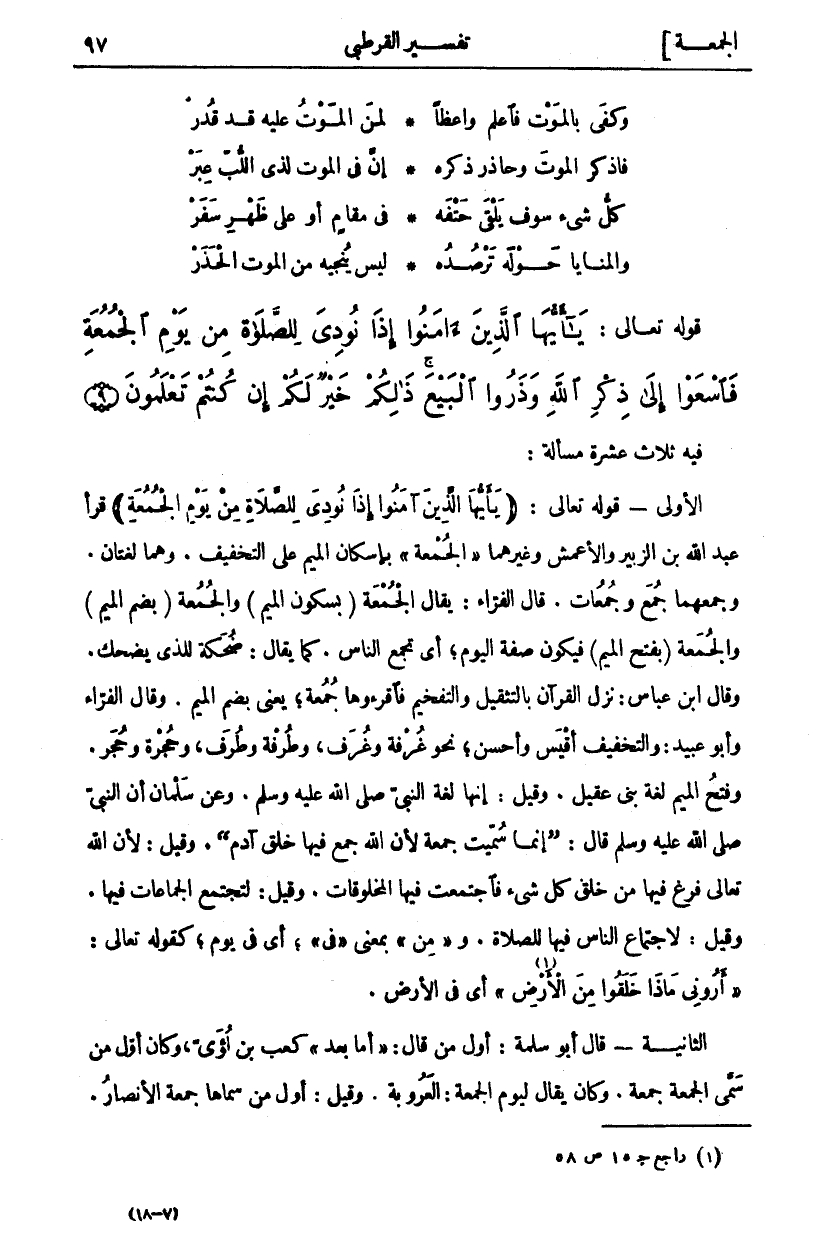 الجمعـــة ] تفســـير القرطبي ٩٧
وكفَى بالمَوْت فٱعلم واعظاً * لمنَ المَـوْتُ عليه قـد قُدِرْ
فاذكر الموتَ وحاذر ذكره * إنّ فى الموت لذى اللُّبّ عِبَرْ
كلُّ شىء سوف يَلْقَى حَتْفَه * فى مقامٍ أو على ظَهْـرِ سَفَرْ
والمنـايا حَــوْلَه تَرْصُـدُه * ليس يُنجيه من الموت الحَذَرْ
قوله تعـالى : يَـٰٓأَيُّهَا ٱلَّذِينَ ءَامَنُوٓا إِذَا نُودِىَ لِلصَّلَوٰةِ مِن يَوْمِ ٱلْجُمُعَةِ
فَٱسْعَوْا إِلَىٰ ذِكْرِ ٱللَّهِ وَذَرُوا ٱلْبَيْعَ ۚ ذَٰلِكُمْ خَيْرٌ لَّكُمْ إِن كُنتُمْ تَعْلَمُونَ ۝٩
فيه ثلاث عشرة مسألة :
الأولى — قوله تعالى : ﴿ يَـأَيُّهَا الَّذِينَ آمَنُوا إِذَا نُودِىَ لِلصَّلَاةِ مِنْ يَوْمِ الْجُمُعَةِ ﴾ قرأ
عبد الله بن الزبير والأعمش وغيرهما « الجُمْعة » بإسكان الميم على التخفيف . وهما لغتان .
وجمعهما جُمَع وجُمُعات . قال الفرّاء : يقال الْجُمْعَة ( بسكون الميم ) والجُمُعة ( بضم الميم )
والجُمَعة (بفتح الميم) فيكون صفة اليوم؛ أى تجمع الناس . كما يقال : ضُحَكة للذى يضحك.
وقال ابن عباس: نزل القرآن بالتثقيل والتفخيم فٱقرءوها جُمُعة؛ يعنى بضم الميم . وقال الفرّاء
وأبو عبيد: والتخفيف أَقْيَس وأحسن؛ نحو غُرْفة وغُرَف، وطُرْفة وطُرَف، وحُجْرة وحُجَر .
وفتحُ الميم لغة بنى عقيل . وقيل : إنها لغة النبىّ صلى الله عليه وسلم . وعن سَلْمان أن النبىّ
صلى الله عليه وسلم قال : ”إنمـا سُمّيت جمعة لأن الله جمع فيها خلق آدم“ . وقيل : لأن الله
تعالى فرغ فيها من خلق كل شىء فٱجتمعت فيها المخلوقات . وقيل: لتجتمع الجماعات فيها .
وقيل : لاجتماع الناس فيها للصلاة . و « مِن » بمعنى «فى» ؛ أى فى يوم ؛ كقوله تعالى :
« أَرُونِى مَاذَا خَلَقُوا مِنَ الْأَرْضِ (١) » أى فى الأرض .
الثانيـــة — قال أبو سلمة : أول من قال: « أما بعد » كعب بن لُؤَىّ ، وكان أوّل من
سَمَّى الجمعة جمعة . وكان يقال ليوم الجمعة : العَرُوبة . وقيل : أول من سماها جمعة الأنصارُ .
(١) راجع جـ ١٥ ص ٥٨
(١٨-٧)